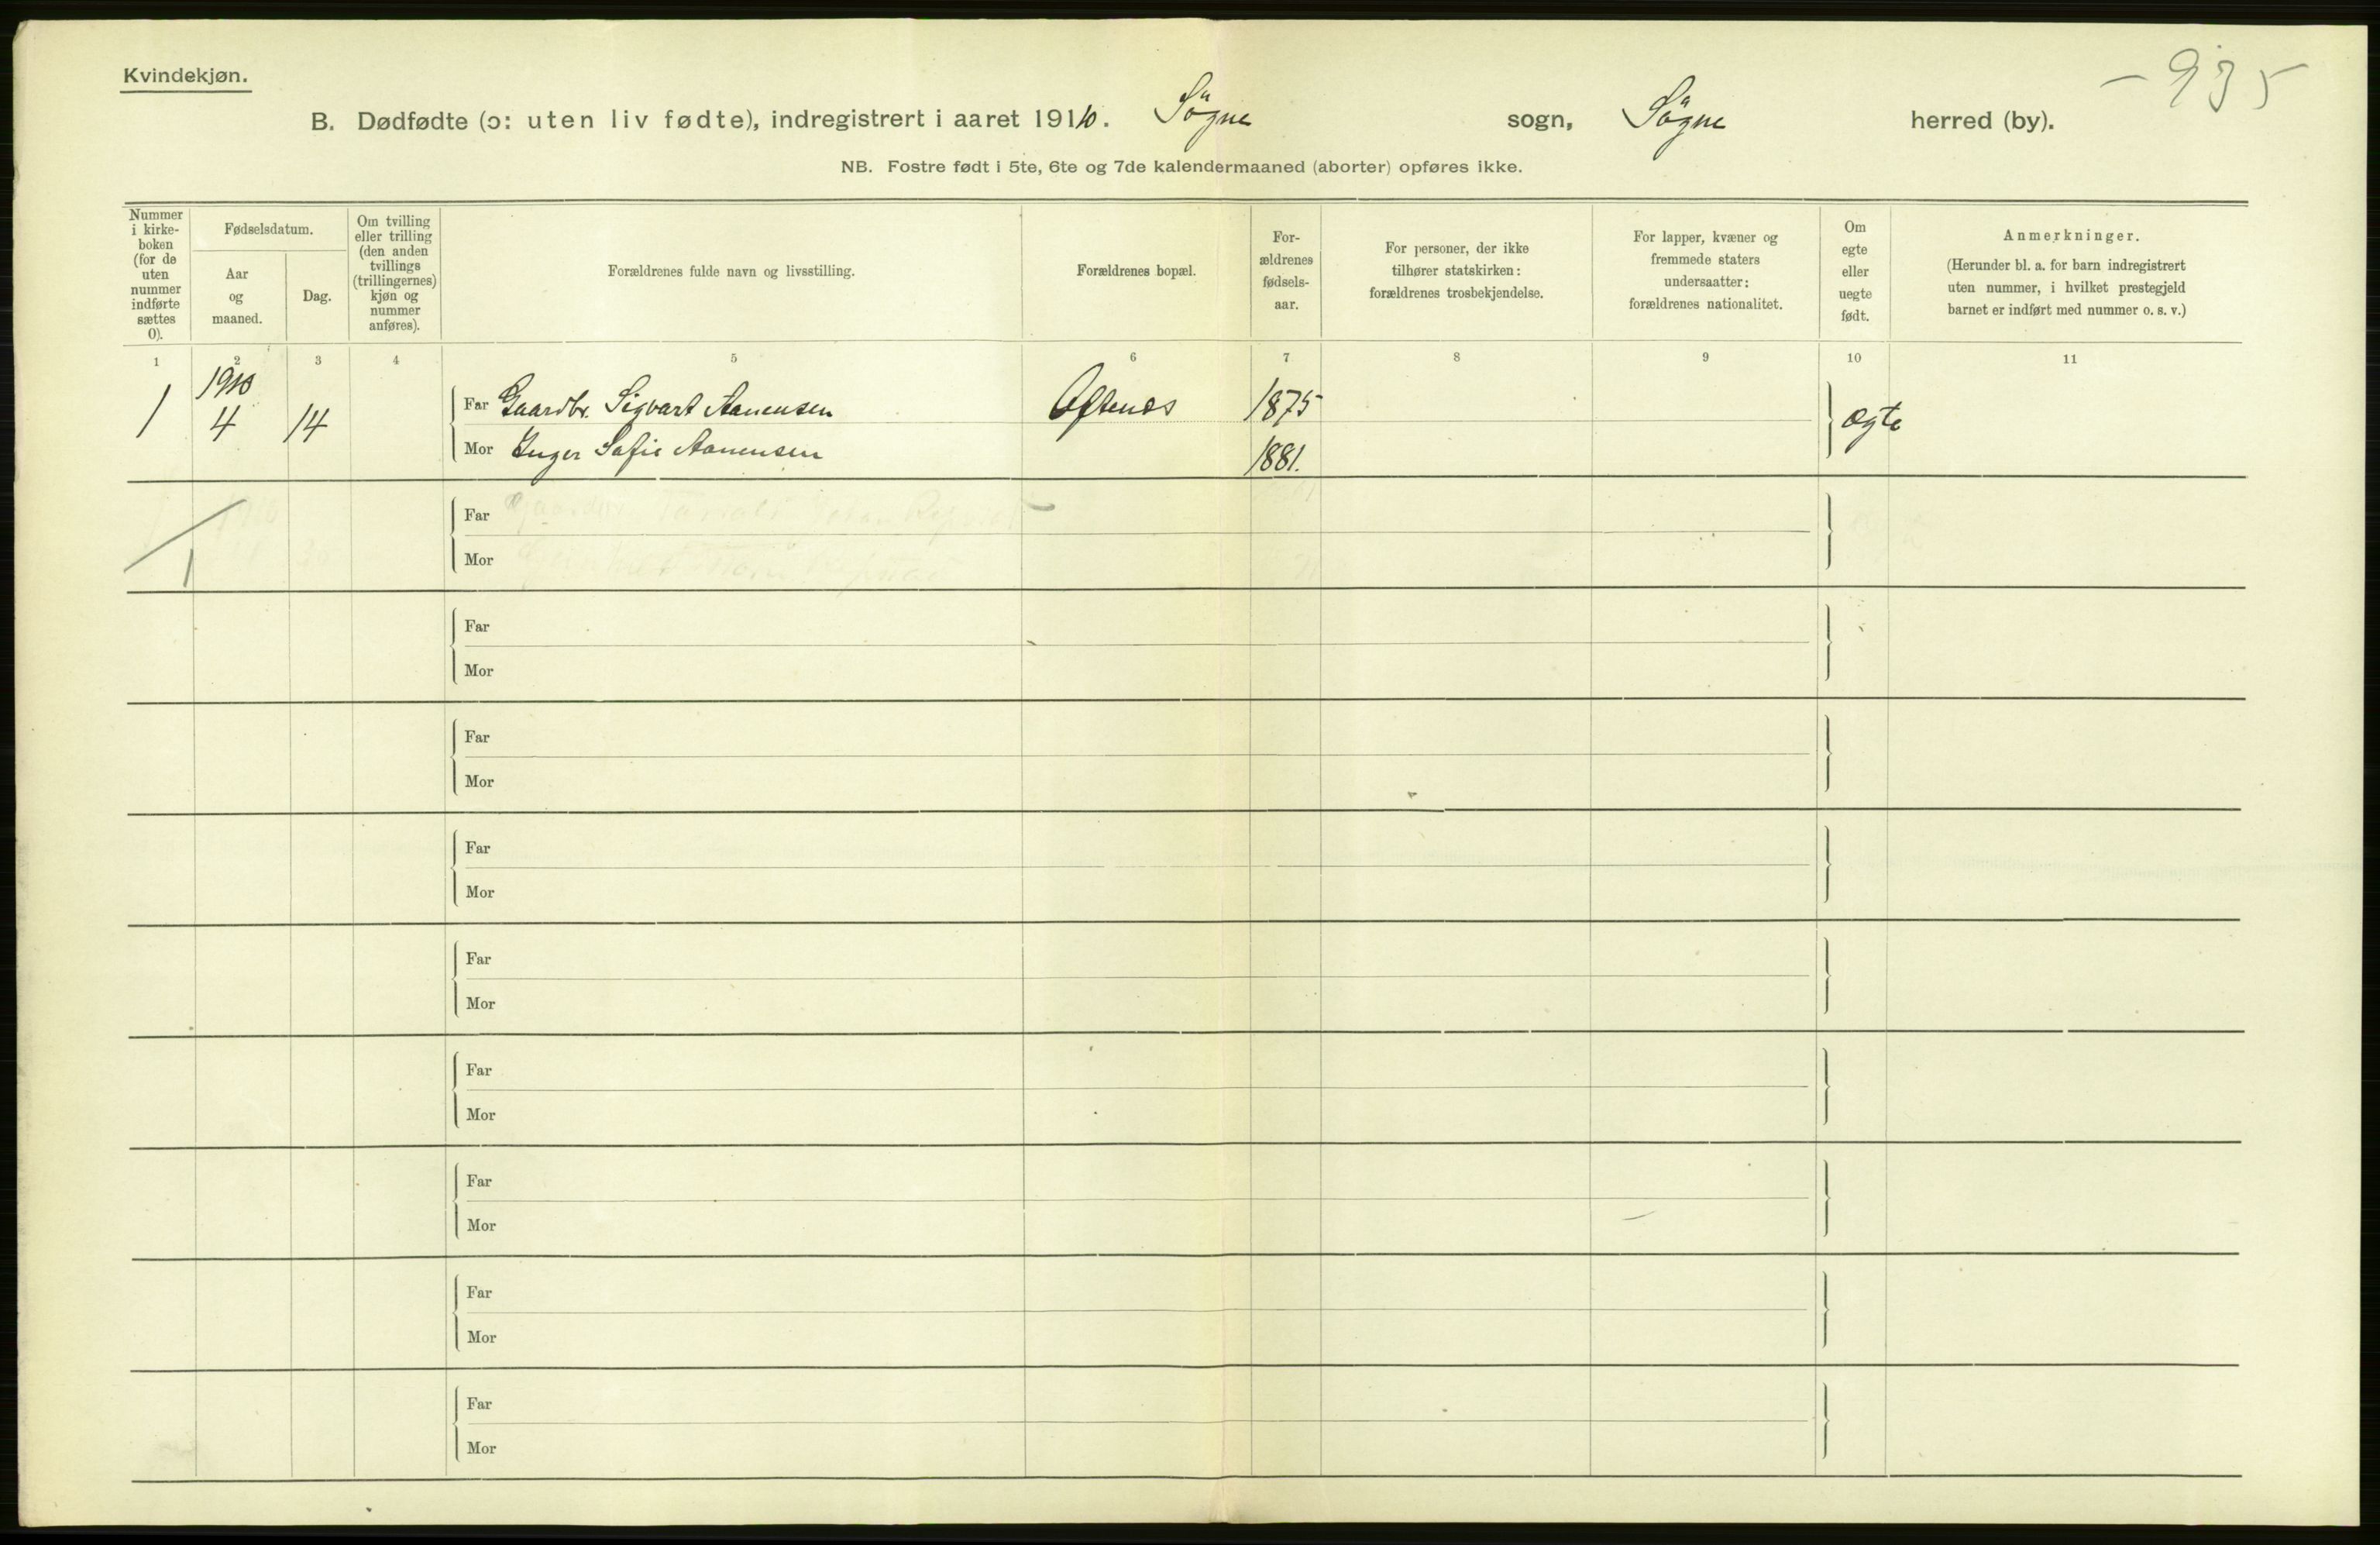 Kvindekjøn.
- 935
B. Dødfødte (ɔ: uten liv fødte), indregistrert i aaret 1910. Søgne sogn, Søgne herred (by).
NB. Fostre født i 5te, 6te og 7de kalendermaaned (aborter) opføres ikke.
Nummer
i kirke-
boken
(for de
uten
nummer
indførte
sættes
0).
Fødselsdatum.
Aar
og
maaned.
Dag.
Om tvilling
eller trilling
(den anden
tvillings
(trillingernes)
kjøn og
nummer
anføres).
Forældrenes fulde navn og livsstilling.
Forældrenes bopæl.
For-
ældrenes
fødsels-
aar.
For personer, der ikke
tilhører statskirken:
forældrenes trosbekjendelse.
For lapper, kvæner og
fremmede staters
undersaatter:
forældrenes nationalitet.
Om
egte
eller
uegte
født.
Anmerkninger.
(Herunder bl. a. for barn indregistrert
uten nummer, i hvilket prestegjeld
barnet er indført med nummer o. s. v.)
1 2 3 4 5 6 7 8 9 10 11
1910
1 4 14 Far Gaardbr. Sigvart Aanensen Oftenes 1875 Ægte
Mor Inger Sofie Aanensen 1881.
Far
1 Mor
Far
Mor
Far
Mor
Far
Mor
Far
Mor
Far
Mor
Far
Mor
Far
Mor
Far
Mor